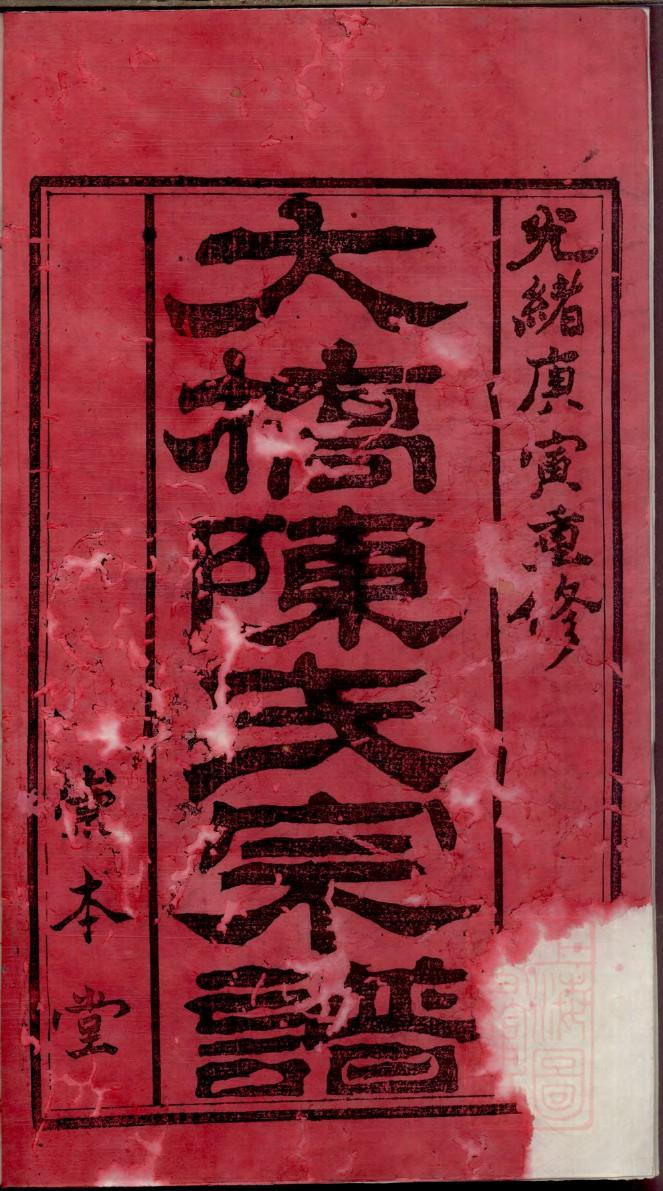 光緒庚寅重修
大橋陳氏宗譜
本堂